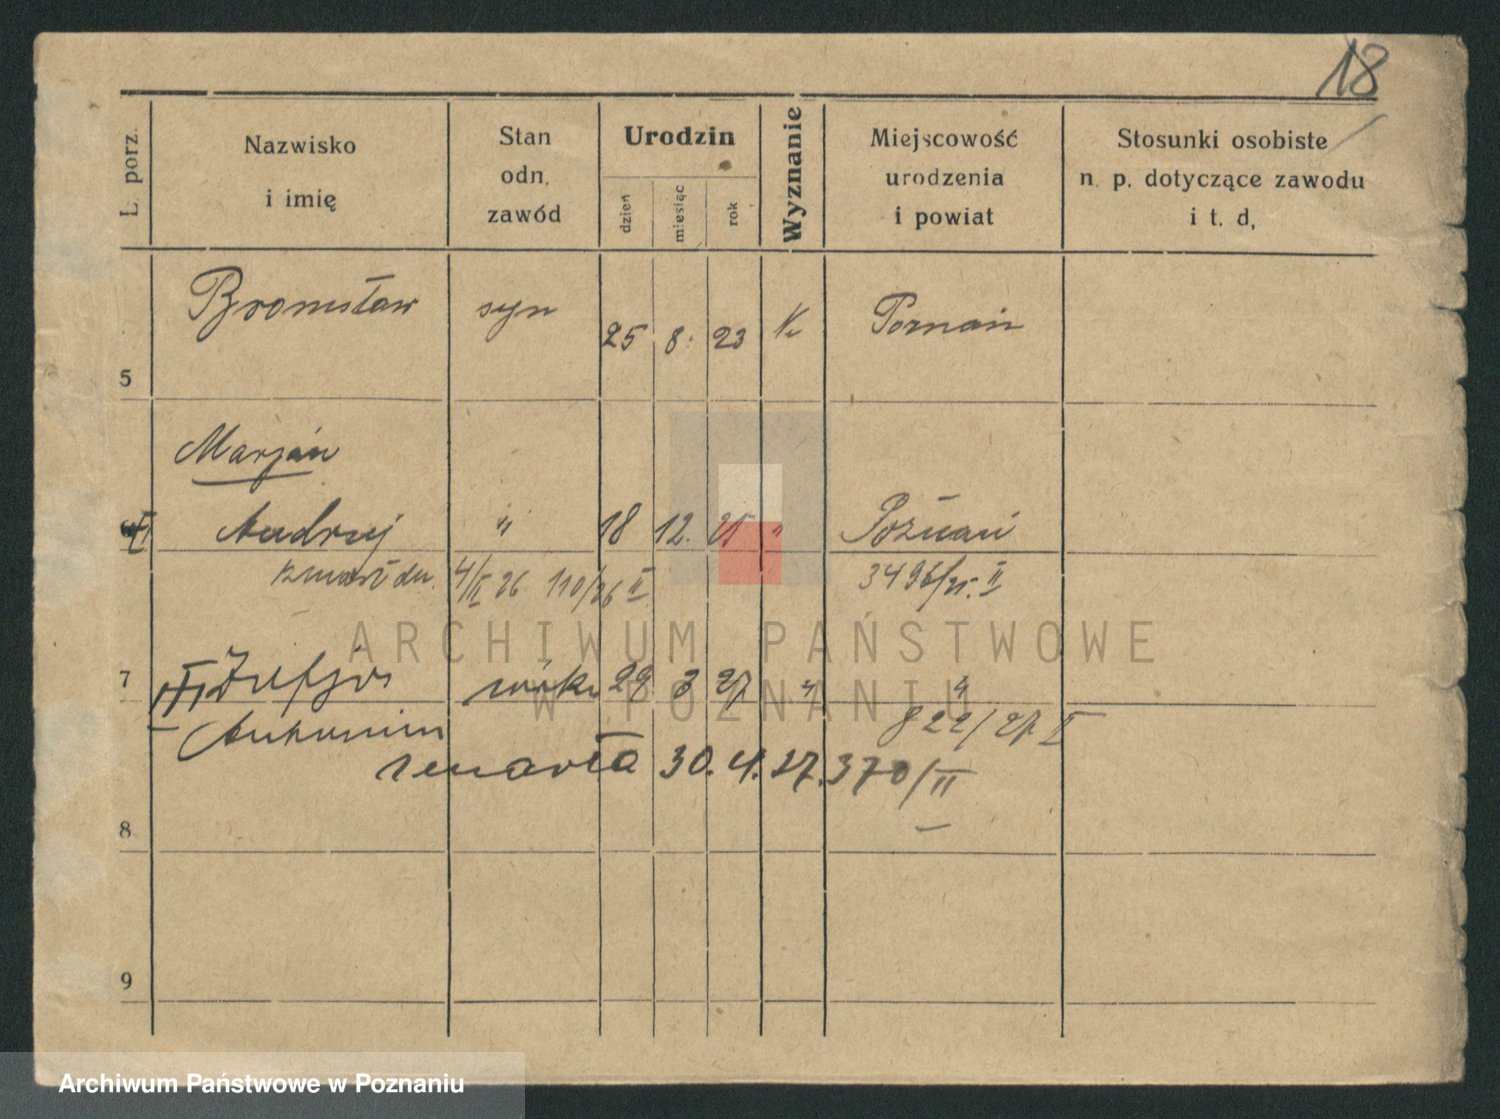 18
L. porz.
Nazwisko
i imię
Stan
odn.
zawód
Urodzin
dzień
miesiąc
rok
Wyznanie
Miejscowość
urodzenia
i powiat
Stosunki osobiste
n. p. dotyczące zawodu
i t. d,
5 Bronisław syn 25 8. 23 k Poznań
Marjan
Andrzej " 18 12. 25 " Poznań
zmarł dn. 4/II 26 110/26 II 3496/25. II
7 III Zofja córka 29 3 27 " "
Antonina 822/27 II
zmarła 30. 4. 27. 370/II
8
9
ARCHIWUM PAŃSTWOWE
W POZNANIU
Archiwum Państwowe w Poznaniu